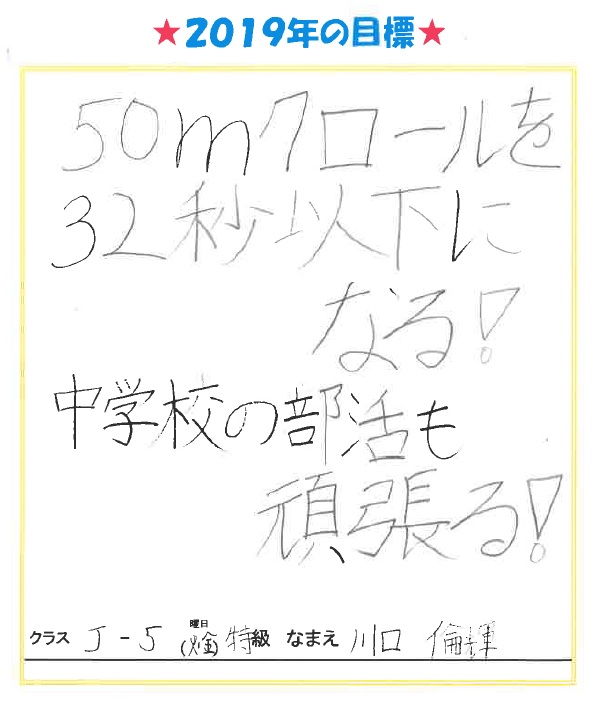 ★2019年の目標★
50mクロールを
32秒以下に
なる!
中学校の部活も
頑張る!
クラス J-5 曜日(火金) 特級 なまえ 川口 倫輝